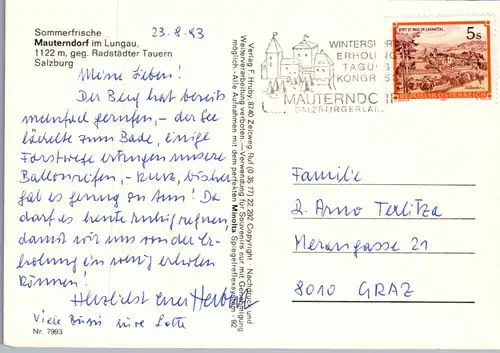 Sommerfrische
Mauterndorf im Lungau,
1122 m, geg. Radstädter Tauern
Salzburg
23.8.93
Meine Lieben!
Der Berg hat bereits
mehrfach gerufen, – der See
lächelte zum Bade, einige
Forstwege ertrugen unsere
Ballonreifen, – kurz, bisher
gab es genug zu tun! Da
darf es heute ruhig regnen
damit wir uns von der Er-
holung ein wenig erholen
können!
Herzlichst euer Herbert
Viele Bussi eure Lotte
Nr. 7993
Verlag F. Hruby, 8740 Zeltweg, Ruf (0 35 77) 22 292 Copyright - Nachdruck und
Weiterverarbeitung verboten. — Verwendung für Souvenirs nur mit Genehmigung
möglich. - Alle Aufnahmen mit dem perfekten Minolta Spiegelreflexsystem - 92
WINTERSP
ERHOLUNG
TAGUNG
KONGRES
MAUTERNDO
SALZBURGERLA
STIFT ST. PAUL IM LAVANTTAL
5s
REPUBLIK ÖSTERREICH
Familie
Z. Arno Terlitza
Merangasse 21
8010 GRAZ